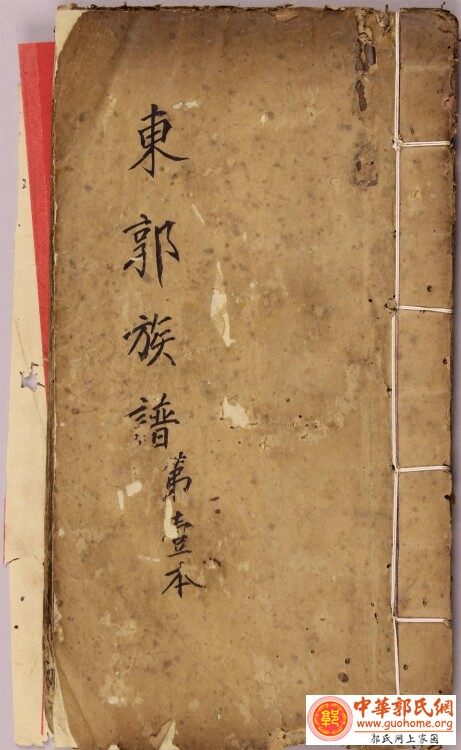 東郭族譜
第壹本
郭
中華郭氏網
www.guohome.org
郭氏网上家园